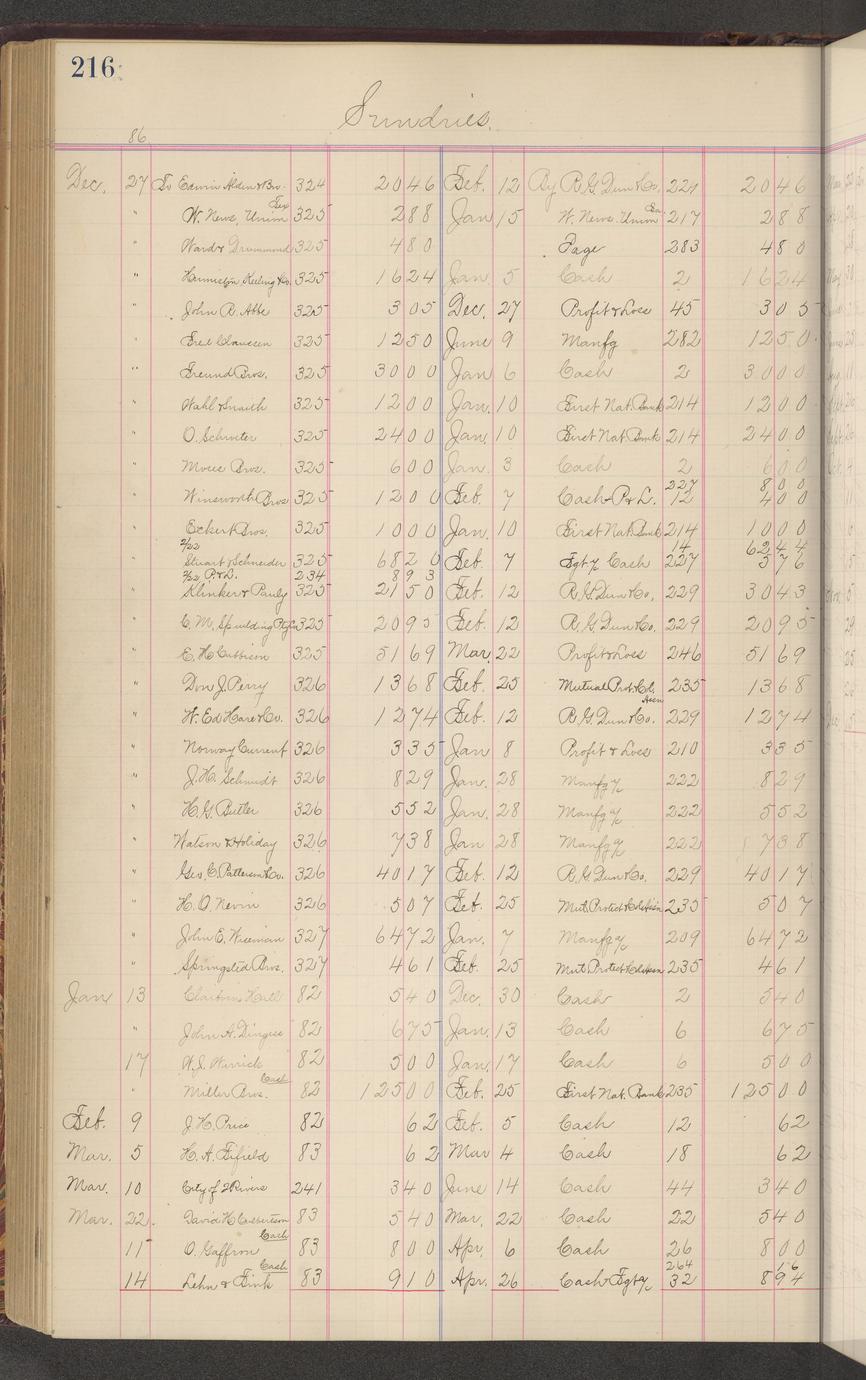 216
Sundries.
86
Dec. 27 To Edwin Alden & Bro. 324 2046 Feb. 12 By R.G. Dun & Co. 229 2046
" W. News. Union 325 288 Jan 15 W. News. Union 217 288
" Ward & Drummond 325 480 Page 283 480
" Humiston, Keeling & Co. 325 1624 Jan 5 Cash 2 1624
" John R. Abbe 325 305 Dec. 27 Profit & Loss 45 305
" Emil Claussen 325 1250 June 9 Manfg 282 1250
" Freund Bros. 325 3000 Jan 6 Cash 2 3000
" Wahl & 325 1200 Jan. 10 First Nat. Bank 214 1200
" O. Schroter 325 2400 Jan. 10 First Nat. Bank 214 2400
" Bros. 325 600 Jan. 3 Cash 2 600
227 800
" Winsworth Bros 325 1200 Feb. 7 Cash P. & L. 12 400
" Eckert Bros. 325 1000 Jan. 10 First Nat. Bank 214 1000
2/22 14 6244
" Stuart & Schneider 325 6820 Feb. 7 Fgt % Cash 227 576
2/22 P. & L. 234 893
" Klinker & Pauly 325 2150 Feb. 12 R.G. Dun & Co. 229 3043
" C.M. Spaulding 325 2095 Feb. 12 R.G. Dun & Co. 229 2095
" E.H. Cuttison 325 5169 Mar. 22 Profit & Loss 246 5169
" Don J. Perry 326 1368 Feb. 25 Mutual Prot. Col. Assn 235 1368
" W. Ed Hare & Co. 326 1274 Feb. 12 R.G. Dun & Co. 229 1274
" Norway Current 326 335 Jan 8 Profit & Loss 210 335
" J.H. Schmidt 326 829 Jan. 28 Manfg % 222 829
" H.G. Butler 326 552 Jan. 28 Manfg % 222 552
" Watson & Holiday 326 738 Jan 28 Manfg % 222 738
" Geo. C. Patterson & Co. 326 4017 Feb. 12 R.G. Dun & Co. 229 4017
" H.O. Nevin 326 507 Feb. 25 Mut. Protect & Col. Assn 235 507
" John E. Wiseman 327 6472 Jan. 7 Manfg % 209 6472
" Springsted Bros. 327 461 Feb. 25 Mut. Protect & Col. Assn 235 461
Jan 13 Hall 82 540 Dec. 30 Cash 2 540
" John A. Dingree 82 675 Jan. 13 Cash 6 675
17 W.J. Wirrick 82 500 Jan. 17 Cash 6 500
Cash
" Miller Bros. 82 12500 Feb. 25 First Nat. Bank 235 12500
Feb. 9 J.H. Price 82 62 Feb. 5 Cash 12 62
Mar. 5 H.A. Fifield 83 62 Mar 4 Cash 18 62
Mar. 10 City of 2 Rivers 241 340 June 14 Cash 44 340
Mar. 22. David H. Culbertson 83 540 Mar. 22 Cash 22 540
Cash
11 O. Gaffron 83 800 Apr. 6 Cash 26 800
Cash 264 16
14 Lehn & Fink 83 910 Apr. 26 Cash Fgt % 32 894